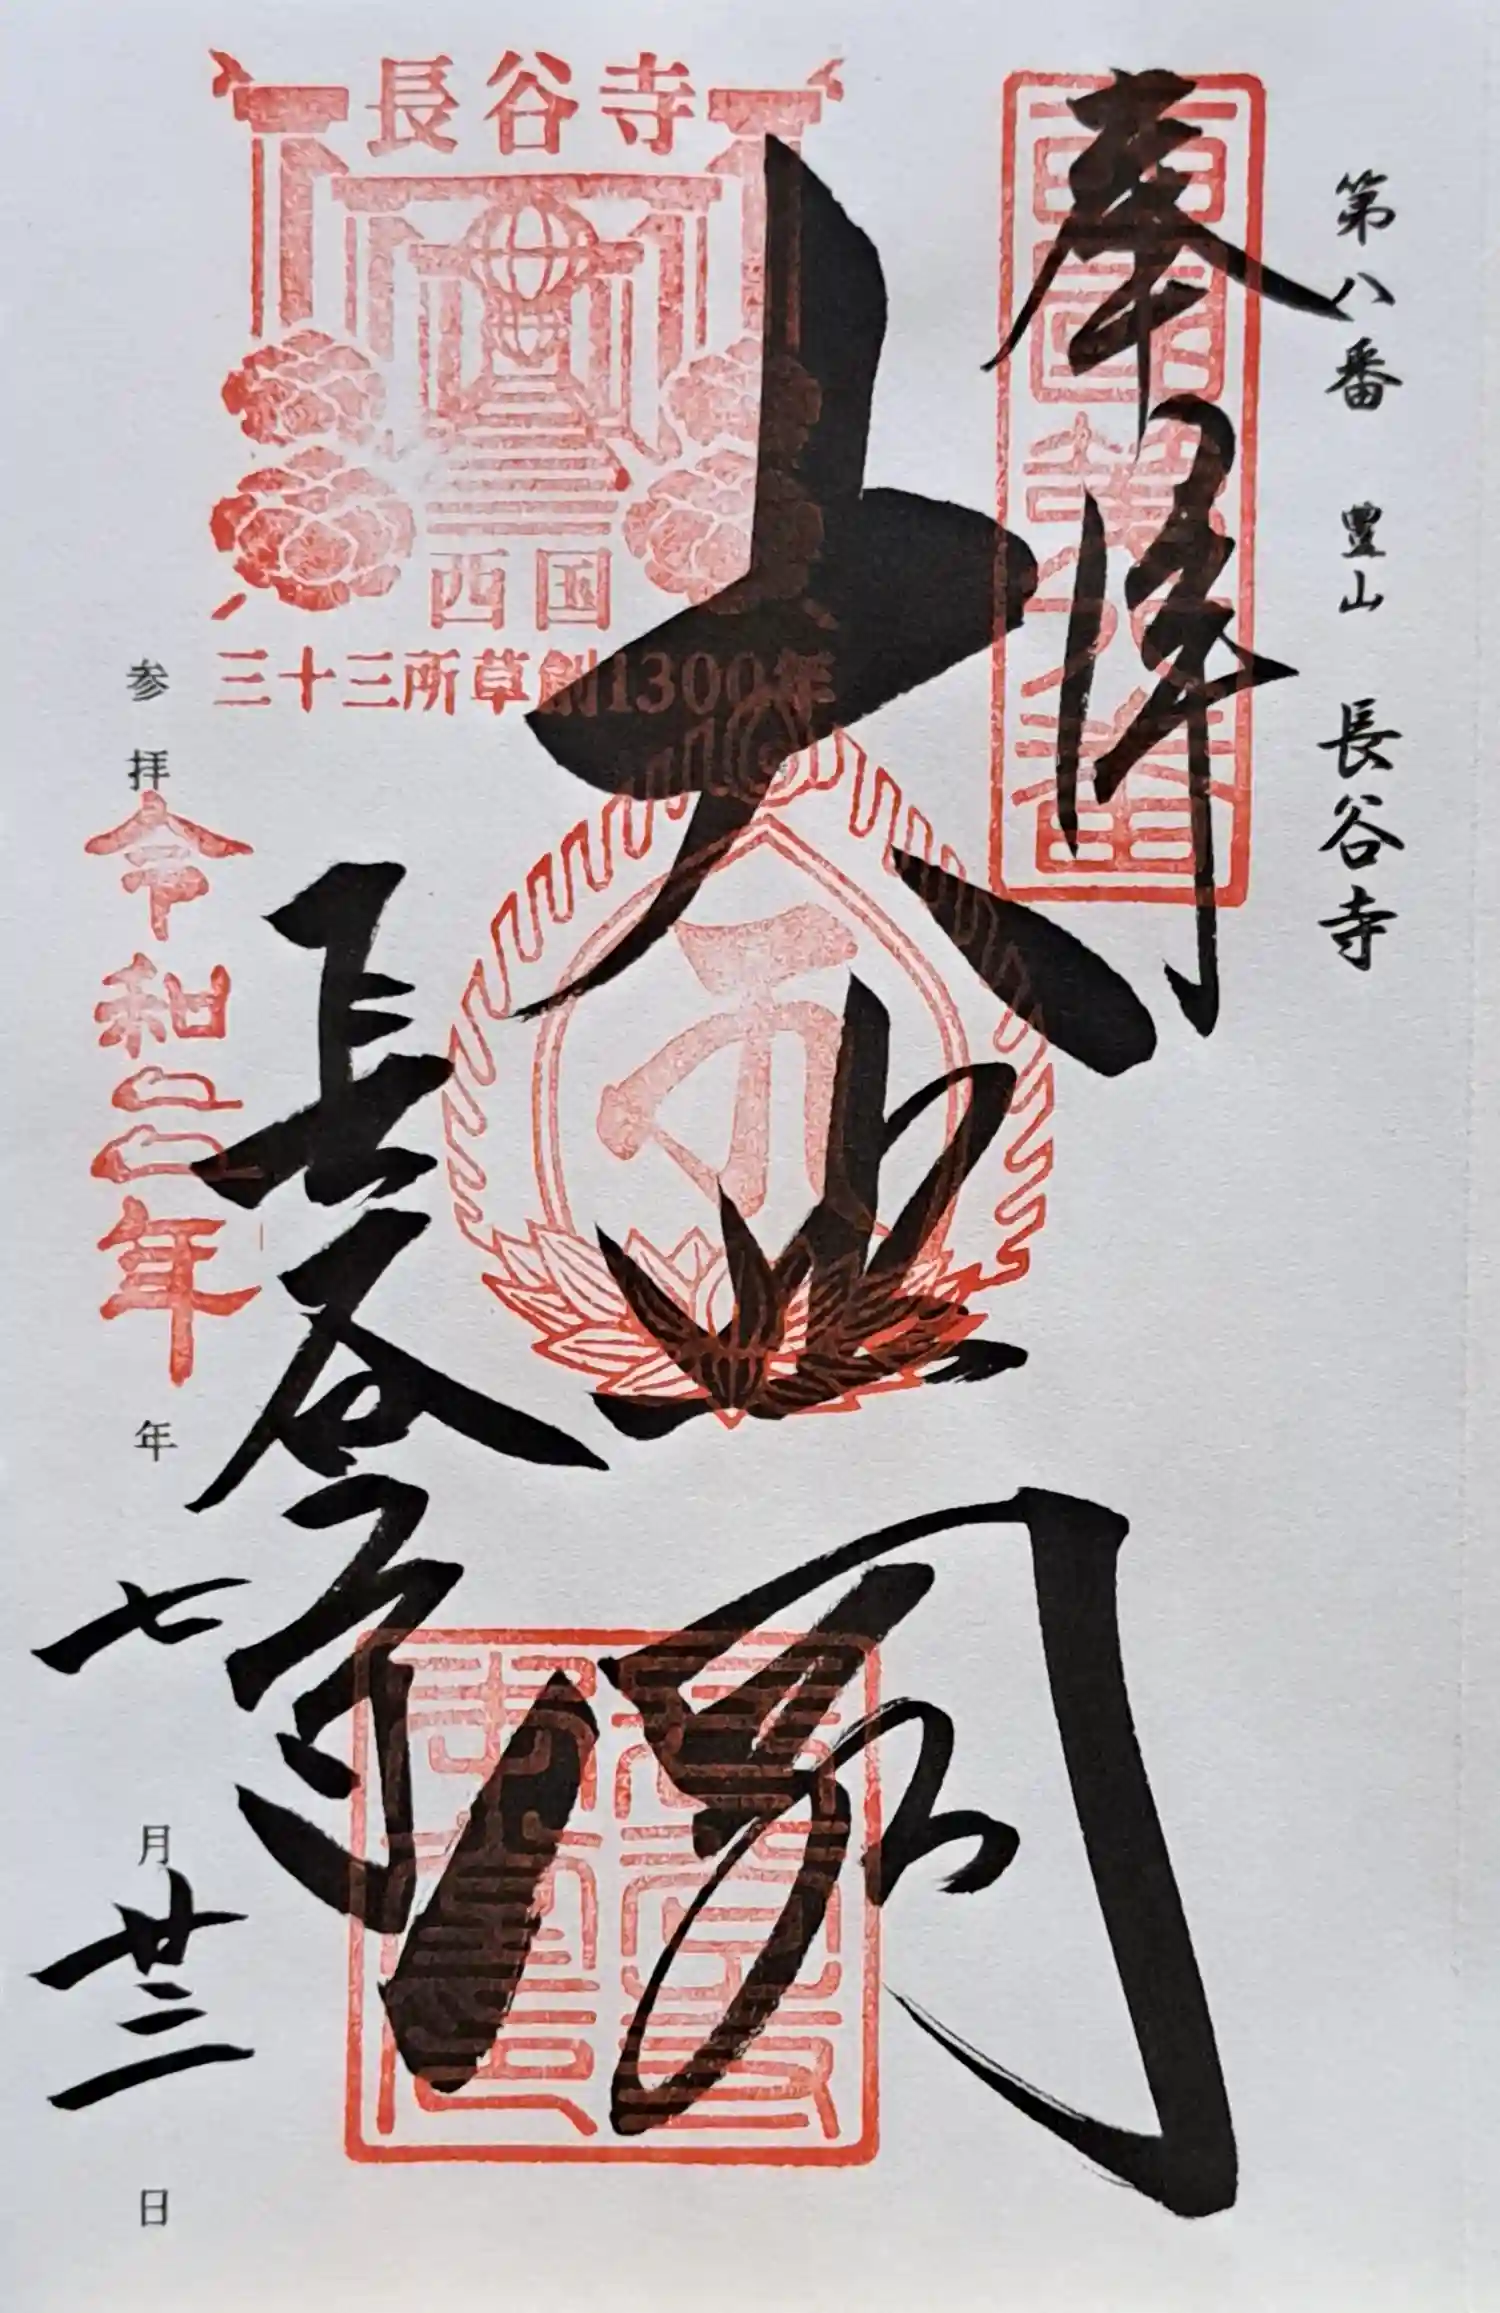 第八番 豊山 長谷寺
奉拝
西国第八番
大悲閣
長谷寺
長谷寺
西国
三十三所草創1300年
参拝 令和二年 年 七 月 廿三 日